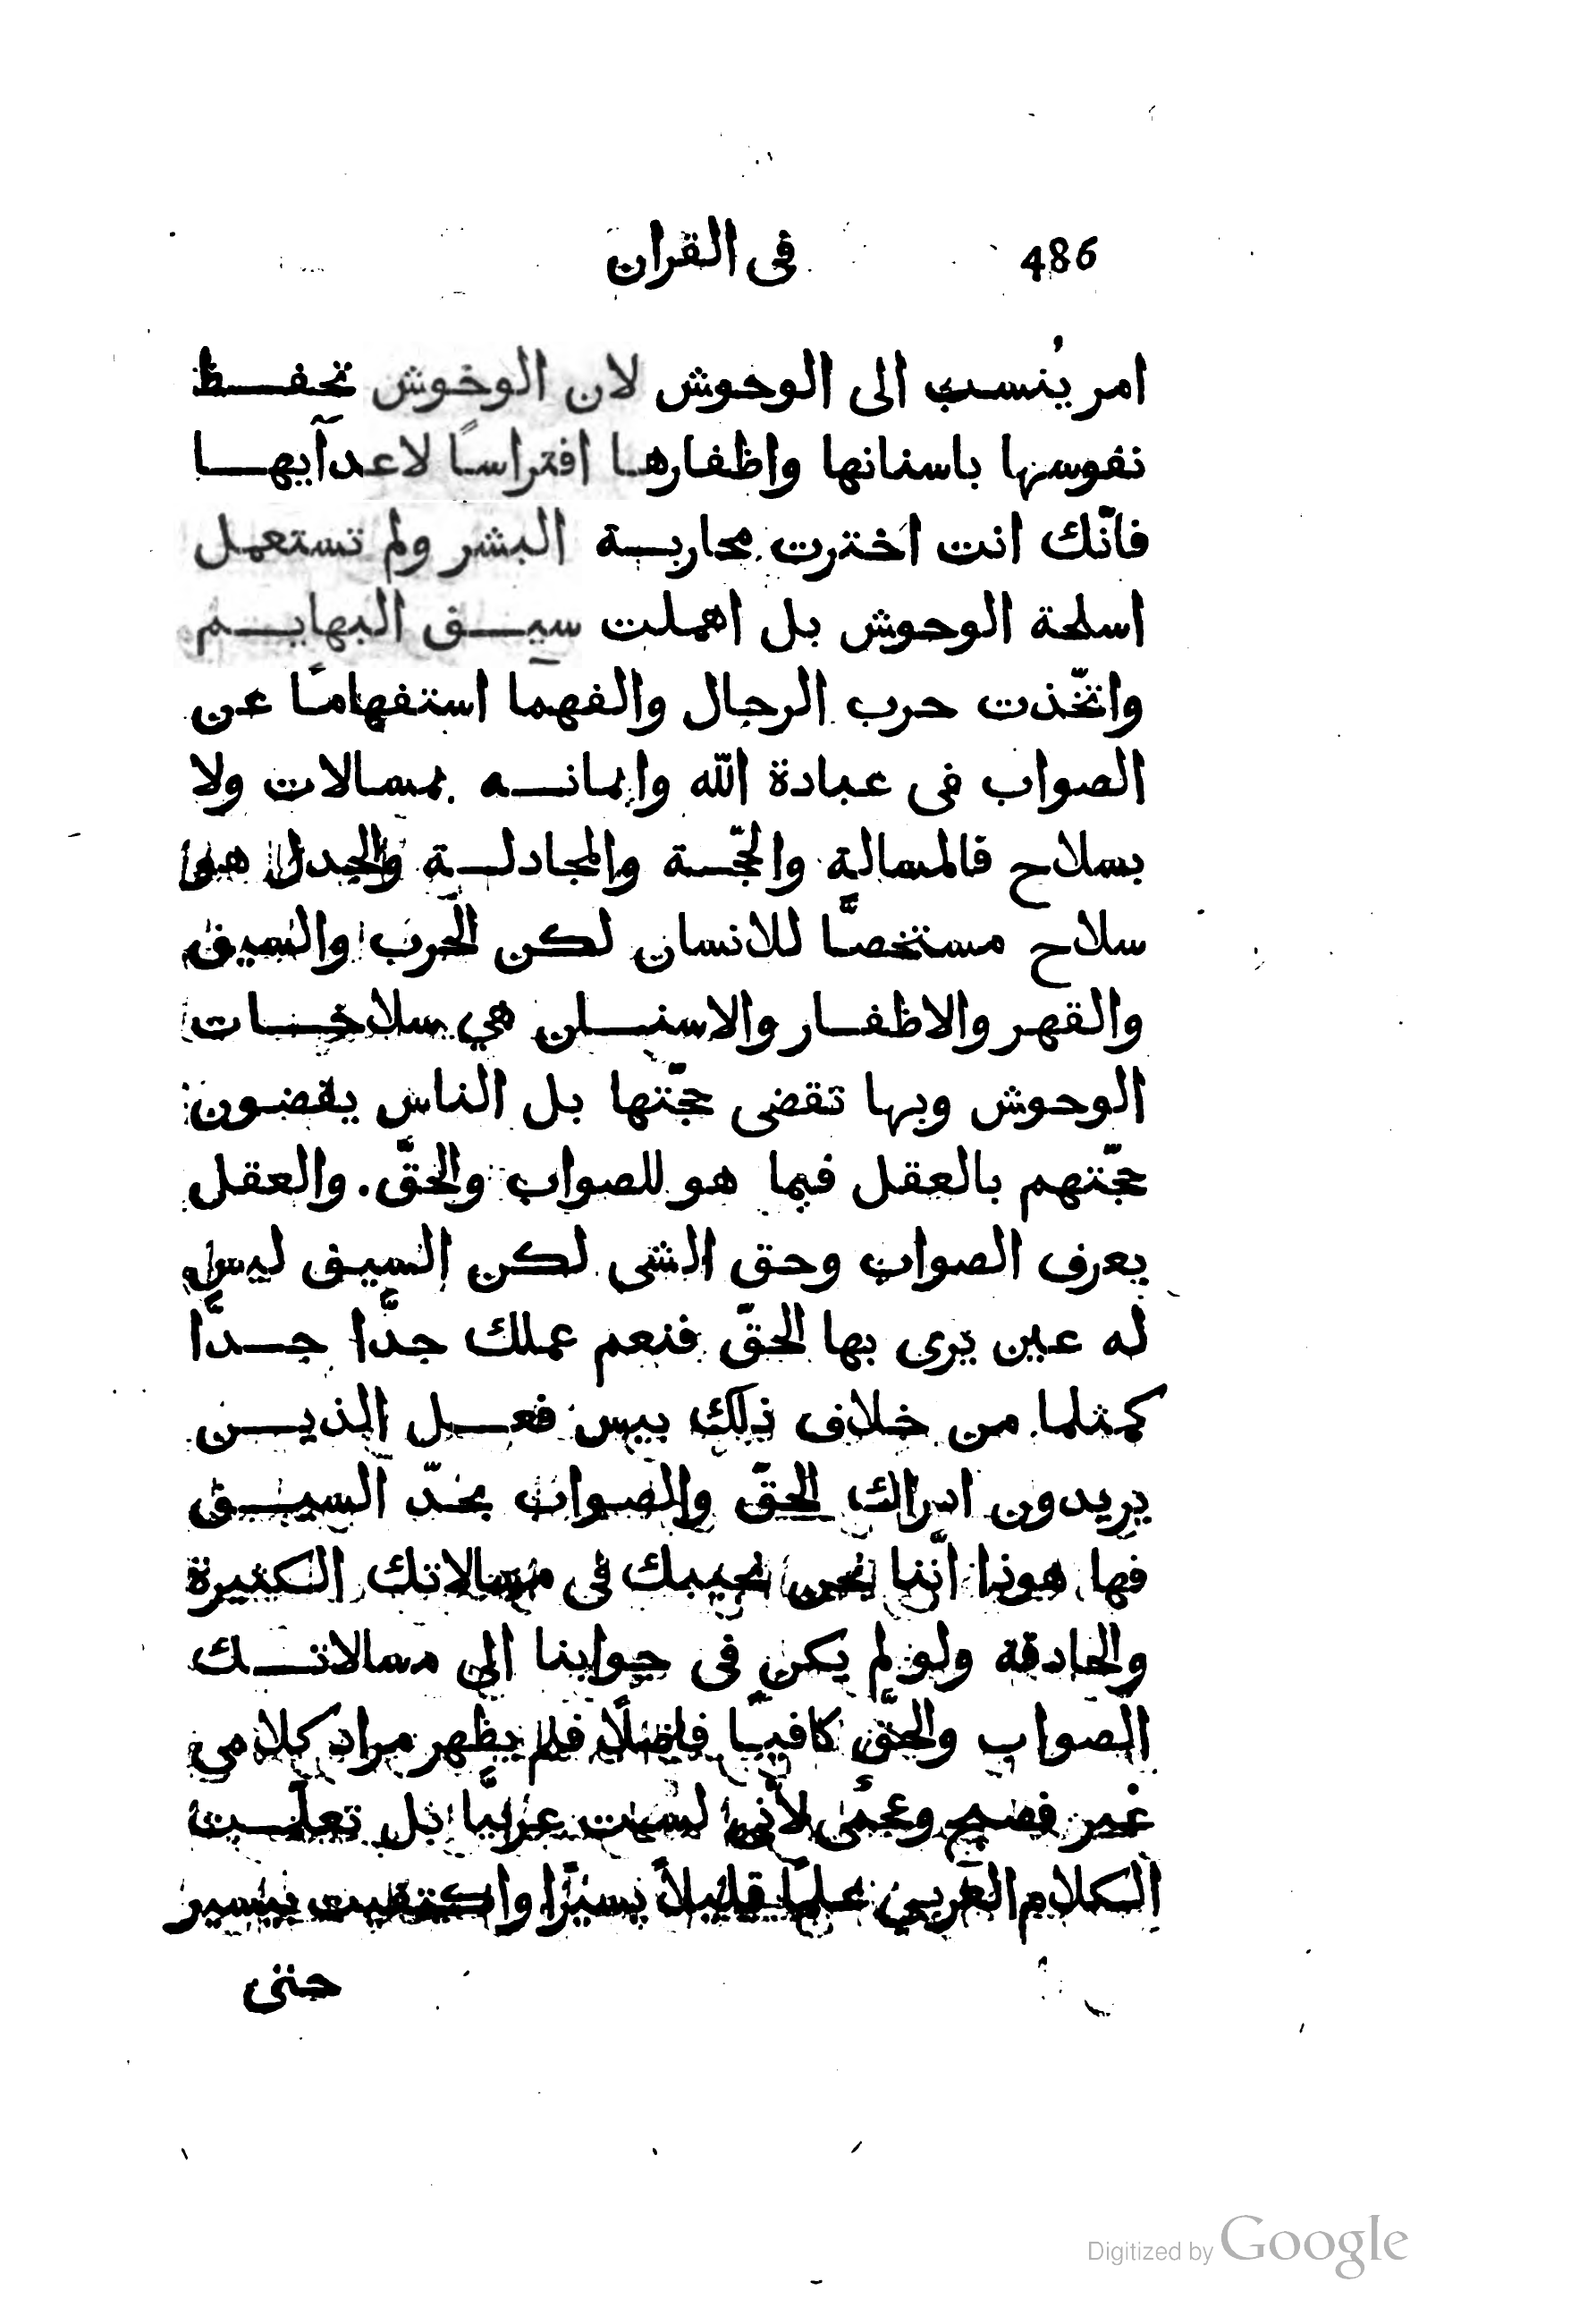 486 فى القران
امر يُنسب الى الوحوش لان الوحوش تحفظ
نفوسها باسنانها واظفارها افتراسًا لاعدآيها
فانّك انت اخترت محاربة البشر ولم تستعمل
اسلحة الوحوش بل اهملت سيف البهايم
واتّخذت حرب الرجال والفهما استفهامًا عن
الصواب فى عبادة الله وايمانه بمسالات ولا
بسلاح فالمسالة والحجّة والمجادلة والجدل هو
سلاح مستخصًّا للانسان لكن الحرب والسيف
والقهر والاظفار والاسنان هي سلاحات
الوحوش وبها تقضى حجّتها بل الناس يقضون
حجّتهم بالعقل فيما هو للصواب والحقّ. والعقل
يعرف الصواب وحق الشى لكن السيف ليس
له عين يرى بها الحقّ فنعم عملك جدًّا جدًّا
كمثلما من خلاف ذلك بيس فعل الذين
يريدون ادراك الحقّ والصواب بحدّ السيف
فها هوذا انّنا نحن نجيبك فى مسالاتك الكثيرة
والحادقة ولو لم يكن فى جوابنا الى مسالاتك
الصواب والحقّ كافيًا فاضلًا فلم يظهر مراد كلامى
غير فصيح وعجمى لأنى لست عربيًّا بل تعلّمت
الكلام العربي علمًا قليلاً يسيرًا واكتفيت بيسير
حتى
Digitized by Google